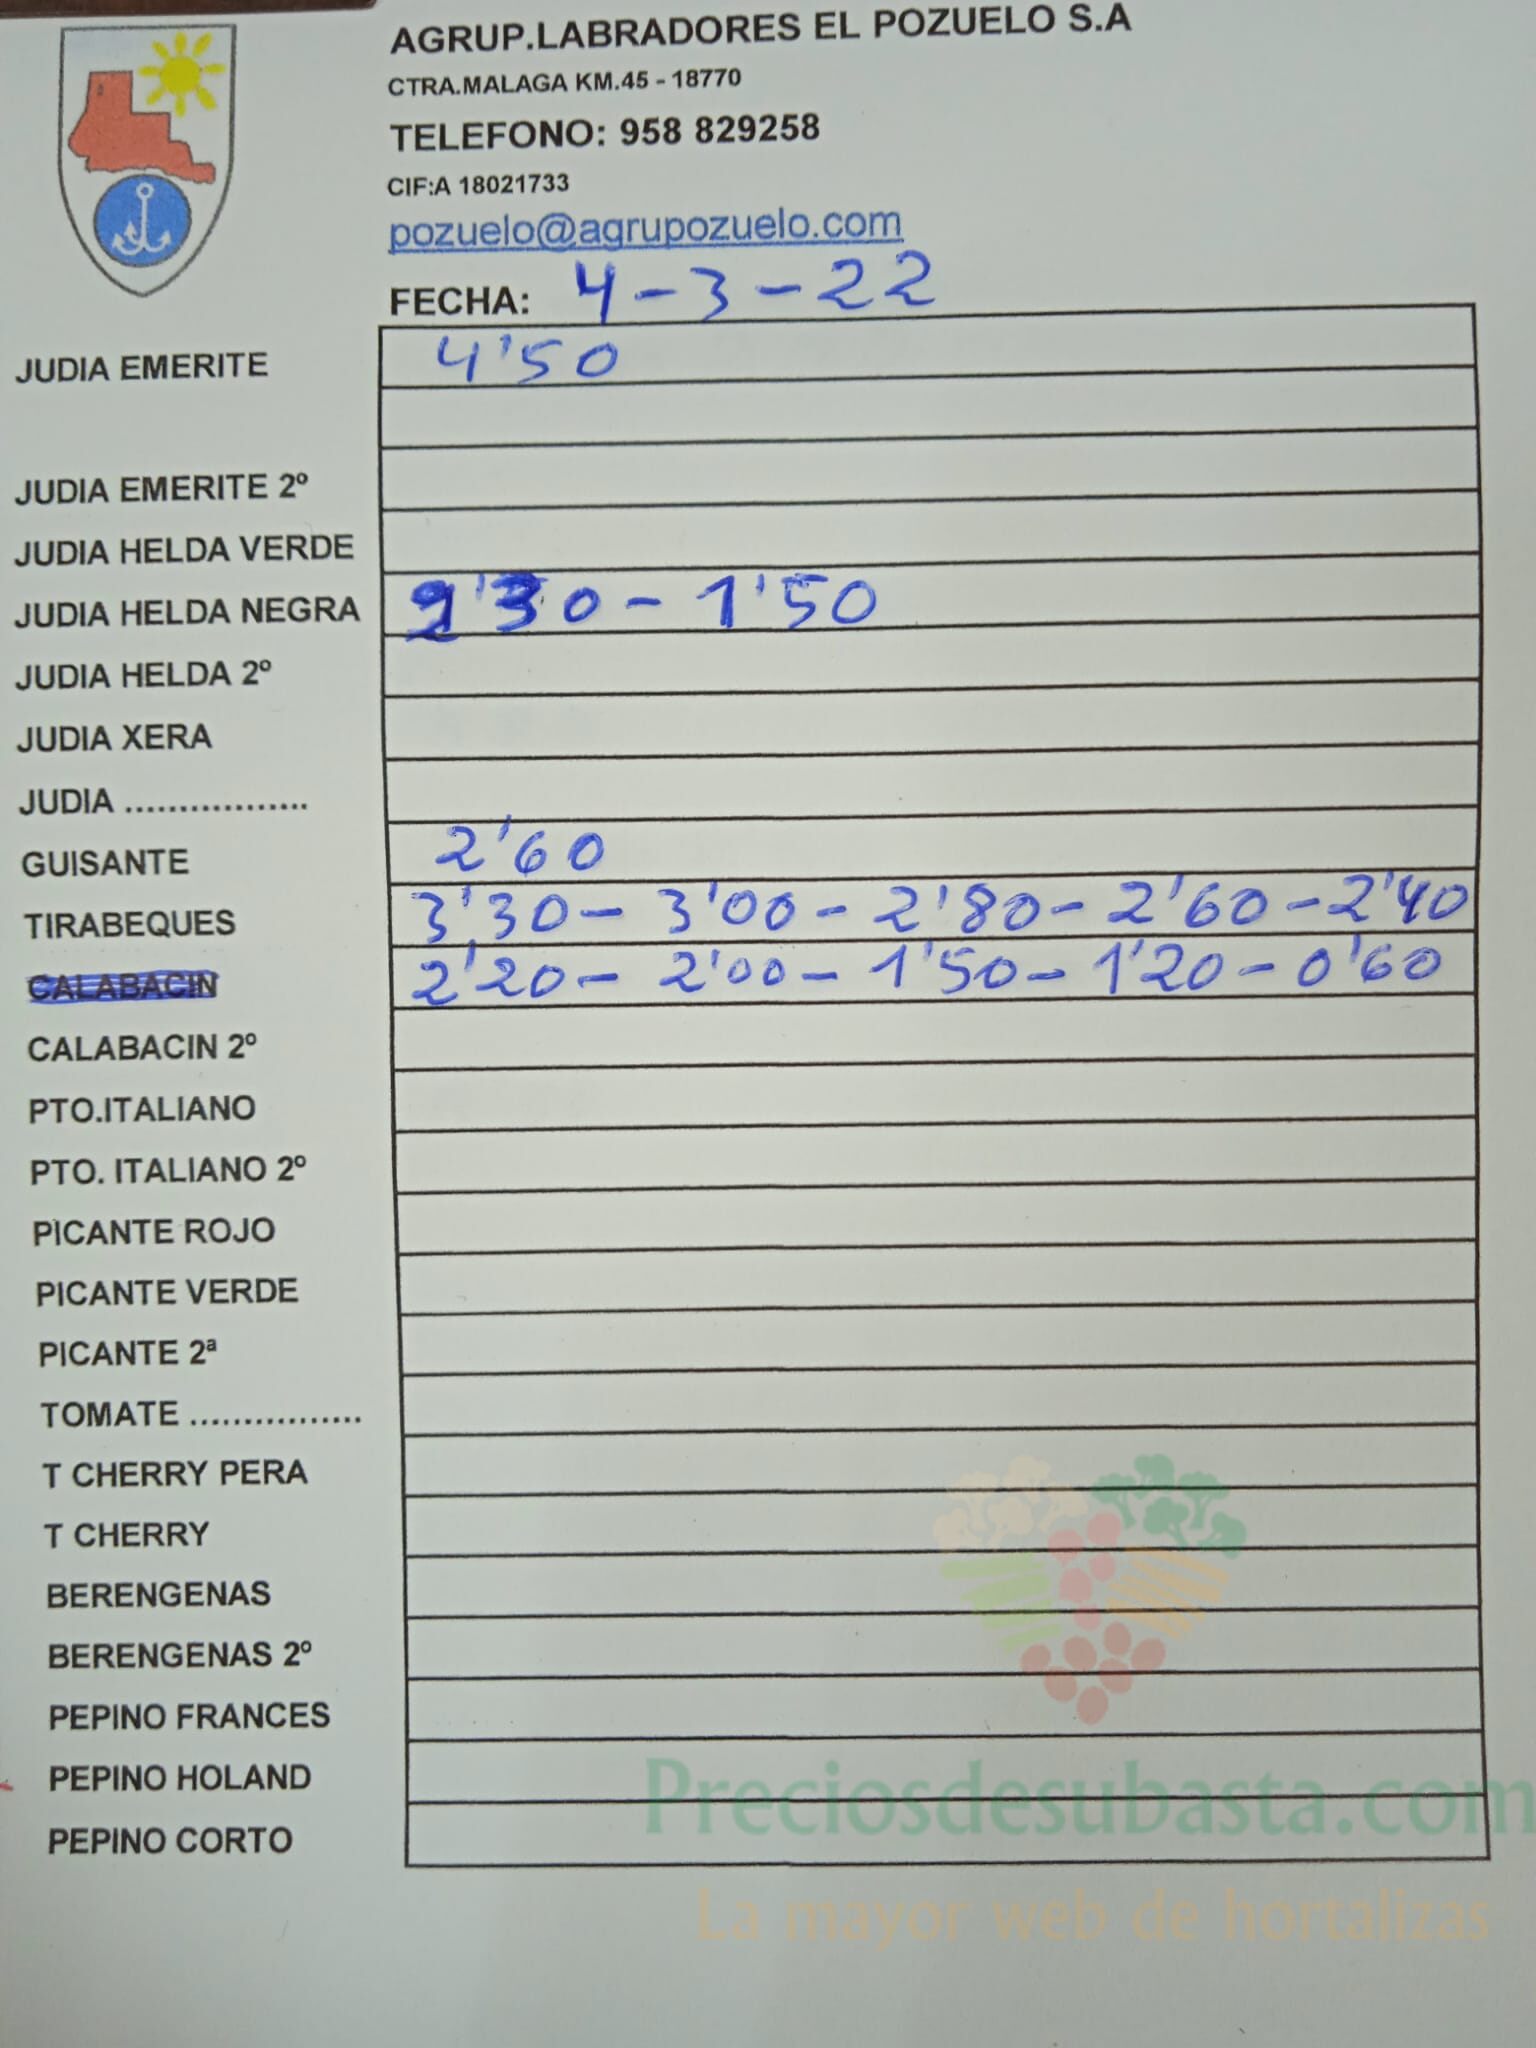 AGRUP.LABRADORES EL POZUELO S.A
CTRA.MALAGA KM.45 - 18770
TELEFONO: 958 829258
CIF:A 18021733
pozuelo@agrupozuelo.com
FECHA: 4-3-22
JUDIA EMERITE 4'50
JUDIA EMERITE 2º
JUDIA HELDA VERDE
JUDIA HELDA NEGRA 2'30 - 1'50
JUDIA HELDA 2º
JUDIA XERA
JUDIA .................
GUISANTE 2'60
TIRABEQUES 3'30 - 3'00 - 2'80 - 2'60 - 2'40
CALABACIN 2'20 - 2'00 - 1'50 - 1'20 - 0'60
CALABACIN 2º
PTO.ITALIANO
PTO. ITALIANO 2º
PICANTE ROJO
PICANTE VERDE
PICANTE 2ª
TOMATE ................
T CHERRY PERA
T CHERRY
BERENGENAS
BERENGENAS 2º
PEPINO FRANCES
PEPINO HOLAND
PEPINO CORTO
Preciosdesubasta.com
La mayor web de hortalizas